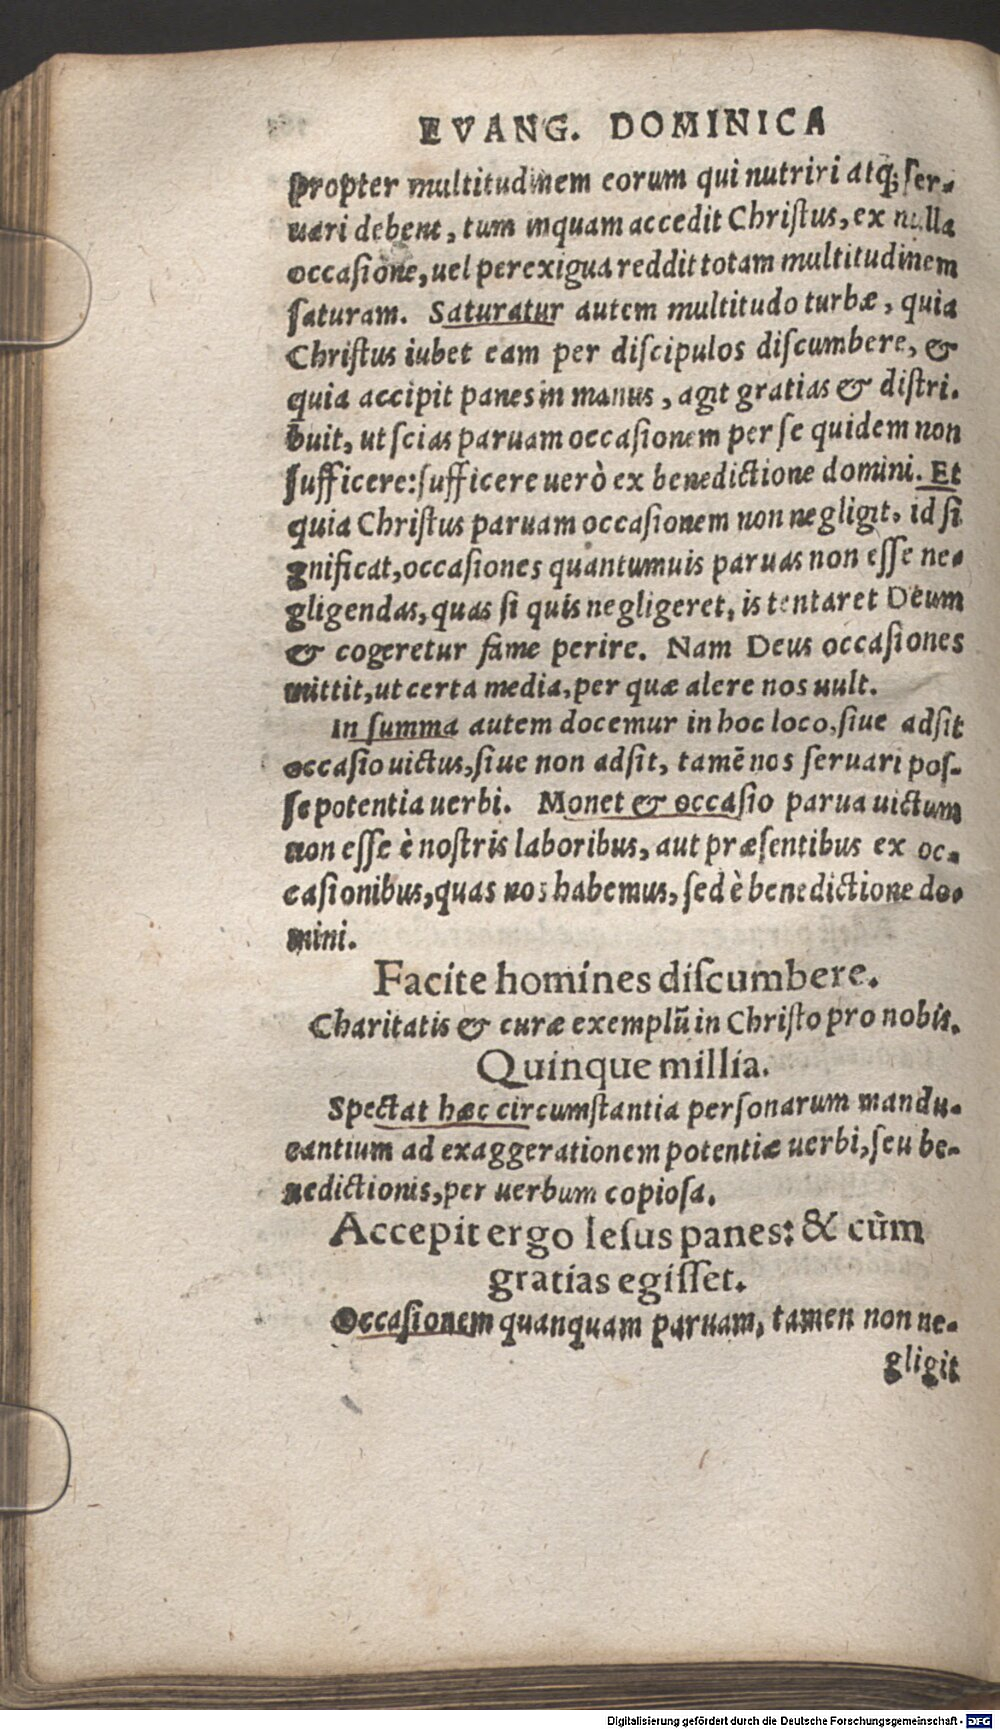 EVANG. DOMINICA
propter multitudinem eorum qui nutriri atq; ſer-
uari debent, tum inquam accedit Chriſtus, ex nulla
occaſione, uel perexigua reddit totam multitudinem
ſaturam. Saturatur autem multitudo turbæ, quia
Chriſtus iubet eam per diſcipulos diſcumbere, &
quia accipit panes in manus, agit gratias & diſtri-
buit, ut ſcias paruam occaſionem per ſe quidem non
ſufficere: ſufficere uerò ex benedictione domini. Et
quia Chriſtus paruam occaſionem non negligit, id ſi
gnificat, occaſiones quantumuis paruas non eſſe ne-
gligendas, quas ſi quis negligeret, is tentaret Deum
& cogeretur fame perire. Nam Deus occaſiones
mittit, ut certa media, per quæ alere nos uult.
In ſumma autem docemur in hoc loco, ſiue adſit
occaſio uictus, ſiue non adſit, tamē nos ſeruari poſ-
ſe potentia uerbi. Monet & occaſio parua uictum
non eſſe è noſtris laboribus, aut præſentibus ex oc-
caſionibus, quas nos habemus, ſed è benedictione do-
mini.
Facite homines diſcumbere.
Charitatis & curæ exemplū in Chriſto pro nobis.
Quinque millia.
Spectat hæc circumſtantia perſonarum mandu-
cantium ad exaggerationem potentiæ uerbi, ſeu be-
nedictionis, per uerbum copioſa.
Accepit ergo Ieſus panes: & cùm
gratias egiſſet.
Occaſionem quanquam paruam, tamen non ne-
gligit
Digitalisierung gefördert durch die Deutsche Forschungsgemeinschaft - DFG